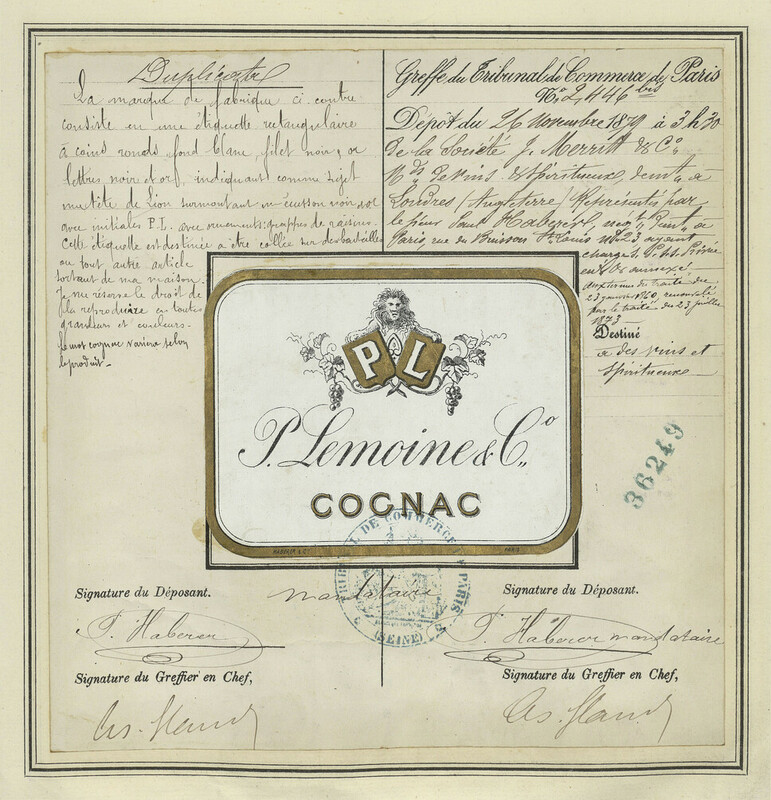 Duplicata
La marque de fabrique ci contre
consiste en une étiquette rectangulaire
à coins ronds fond blanc, filet noir, or
lettres noir et or, indiquant comme sujet
une tête de Lion surmontant un écusson noir et or
avec initiales P.L. avec ornements: grappes de raisins.
Cette étiquette est destinée a être collée sur des bouteilles
ou tout autre article
sortant de ma maison.
Je me réserve le droit de
la reproduire en toutes
grandeurs et couleurs.
Le mot cognac variera selon
le produit.
Greffe du Tribunal de Commerce de Paris
No. 2,446 bis
Dépôt du 26 novembre 1879 à 3 h 30
de la Société J. Merritt & Co
Mds de vins & spiritueux, demt à
Londres / Angleterre / Représentés par
le sieur Paul Haberer, demt à
Paris, rue du Buisson St Louis No 23 ayant
charge, s.s. Privée
en / 8s annexé,
aux termes du traité du
23 janvier 1860, renouvelé
par le traité du 23 juillet
1873
Destiné
a des vins et
spiritueux
P L
P. Lemoine & Co
COGNAC
HABERER & C
PARIS
36249
TRIBUNAL DE COMMERCE DE PARIS
(SEINE)
Signature du Déposant.
mandataire
Signature du Déposant.
P. Haberer
P. Haberer mandataire
Signature du Greffier en Chef,
Signature du Greffier en Chef,